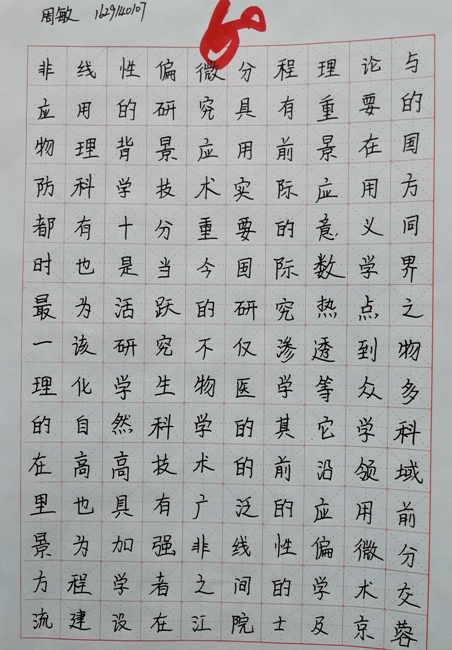 周敏 1629140107
60
非线性偏微分程理论与
应用的研究具有重要的
物理背景应用前景在国
防科学技术实际应用方
都有十分重要的意义同
时也是当今国际数学界
最为活跃的研究热点之
一该研究不仅渗透到物
理化学生物医学等众多
的自然科学的其它学科
在高高技术的前沿领域
里也具有广泛的应用前
景为加强非线性偏微分
方程学者之间的学术交
流建设在江院士及京蓉